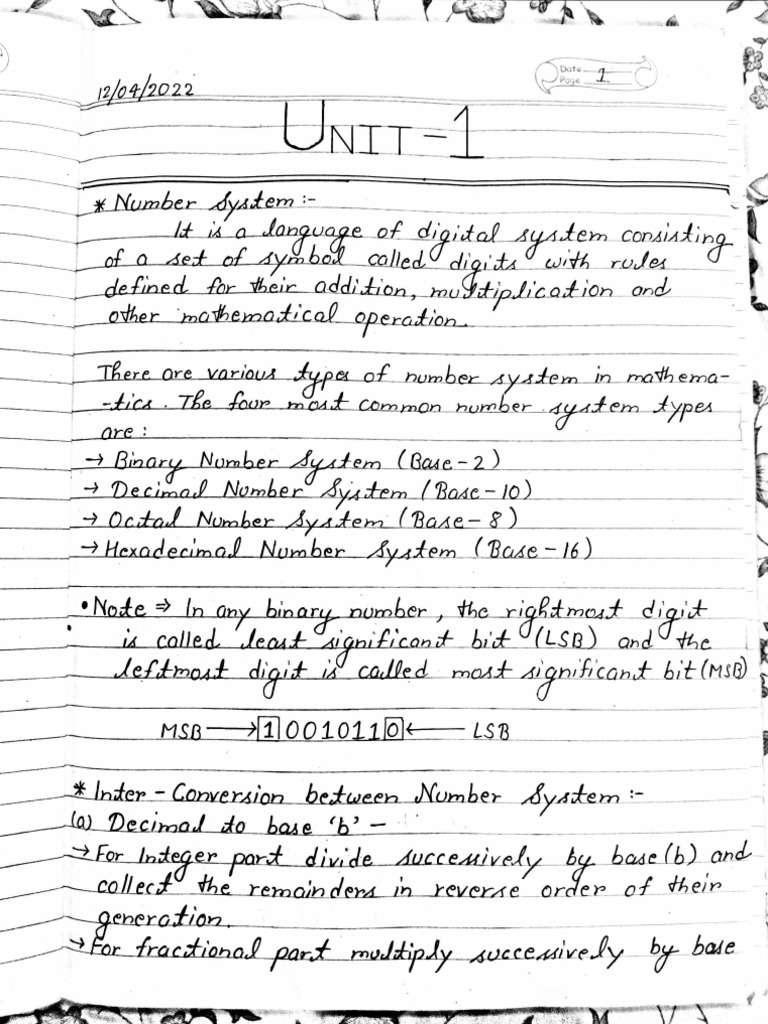 Date
Page 1
12/04/2022
UNIT-1
* Number System :-
It is a language of digital system consisting
of a set of symbol called digits with rules
defined for their addition, multiplication and
other mathematical operation.
There are various types of number system in mathema-
-tics. The four most common number system types
are :
→ Binary Number System (Base-2)
→ Decimal Number System (Base-10)
→ Octal Number System (Base-8)
→ Hexadecimal Number System (Base-16)
• Note ⇒ In any binary number, the rightmost digit
is called least significant bit (LSB) and the
leftmost digit is called most significant bit (MSB)
MSB → 10010110 ← LSB
* Inter-Conversion between Number System :-
(a) Decimal to base 'b' -
→ For Integer part divide successively by base (b) and
collect the remainders in reverse order of their
generation.
→ For fractional part multiply successively by base